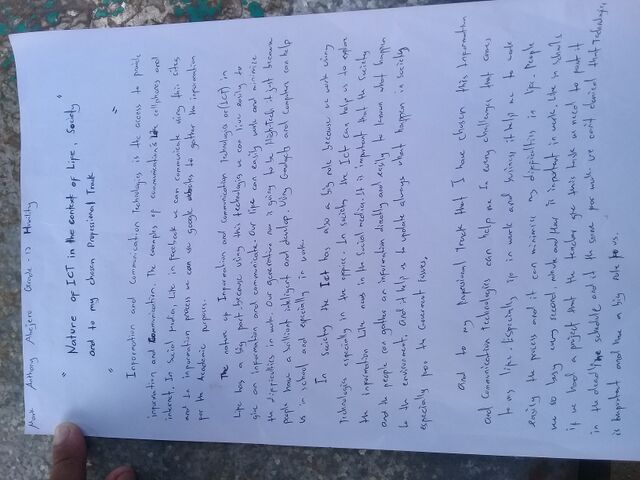 Mark Anthony Abejero Grade - 12 Humility
" Nature of ICT in the context of Life, Society
and to my chosen Propessional Track "
Information and Communication Technologies is the access to provide
information and Communication. The examples of communications is cellphones and
internet. In Social Media, Like in Facebook we can communicate using this cites
and in information process we can use google websites to gather the information
for the Academic purposes.
The nature of Information and Communication Technologies or (ICT) in
Life has a big part because using this technologies we can live easily to
give an information and communicate. Our life can easily work and minimize
the difficulties in work. Our generation now is going to be Hightech it just because
people have a brilliant intelligent and develop. Using Gadgets and Computers can help
us in school and especially in work.
In Society the Ict has also a big role because we work using
Technologies especially in the office. In society the Ict can help us to explore
the information Like news in the Social media. It is important that the Society
and the people can gather an information directly and easily to known what happen
to the environment. And it help us to update always what happen in Society
especially for the Government Issues.
And to my Propesional Track that I have chosen this Information
and Communication Technologies can help me in every challenges that comes
to my life. Especially if in work and business it help me to work
easily the process and it can minimize my difficulties in life. People
are so busy every second, minute and Hour is important in work. Like in Schools
if we had a project that the teacher gave this task we need to past it
in the deadline schedule and it the same for work. We can't denied that Technologies
is important and has a big role for us.